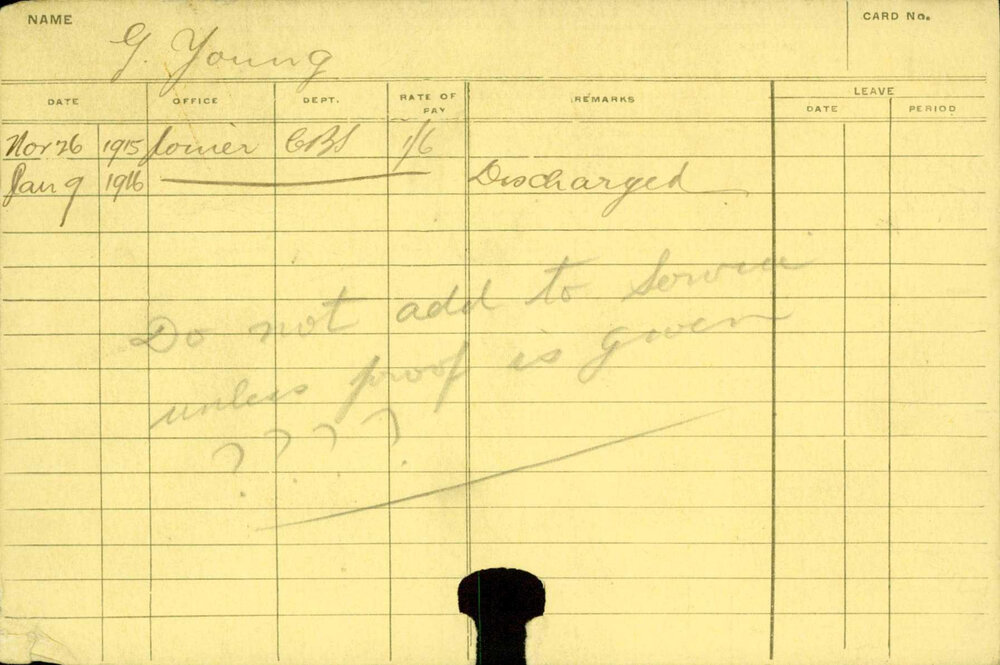 NAME
G. Young
CARD No.
DATE OFFICE DEPT. RATE OF PAY REMARKS LEAVE
DATE PERIOD
Nov 26 1915 Joiner CBS 1/6
Jan 9 1916 Discharged
Do not add to Service
unless proof is given
? ? ? ?